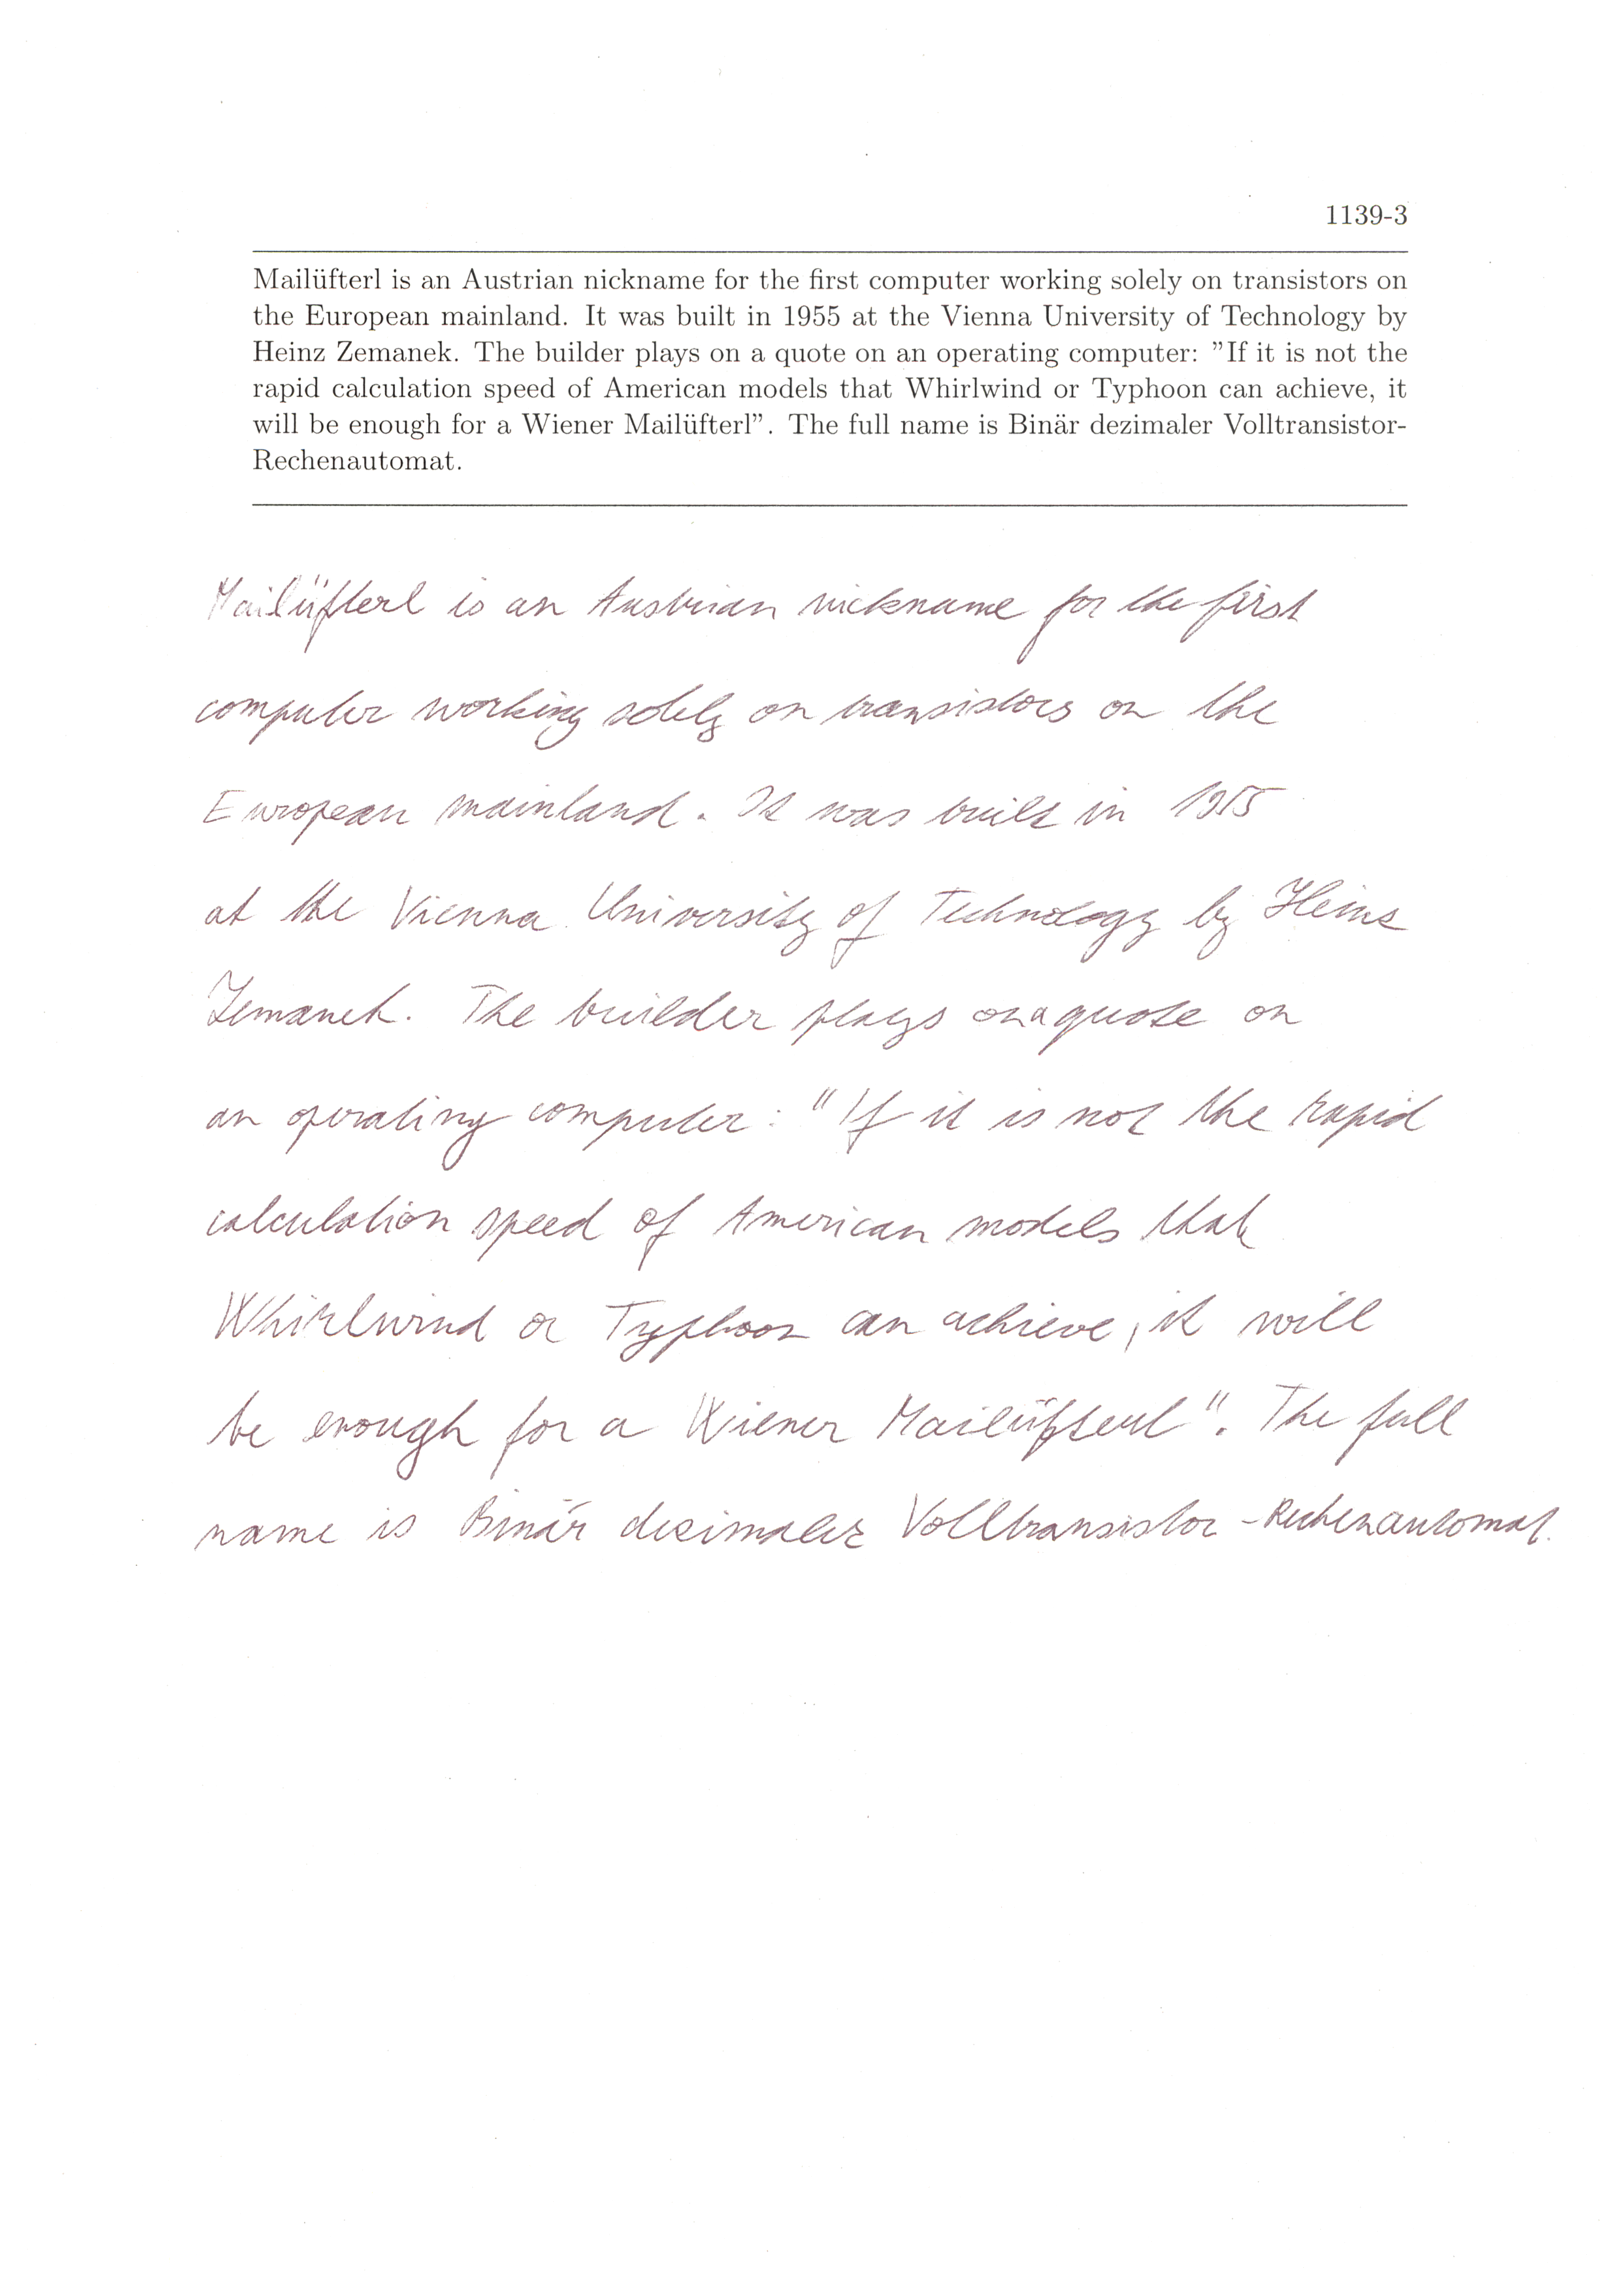 1139-3
Mailüfterl is an Austrian nickname for the first computer working solely on transistors on
the European mainland. It was built in 1955 at the Vienna University of Technology by
Heinz Zemanek. The builder plays on a quote on an operating computer: ”If it is not the
rapid calculation speed of American models that Whirlwind or Typhoon can achieve, it
will be enough for a Wiener Mailüfterl”. The full name is Binär dezimaler Volltransistor-
Rechenautomat.
Mailüfterl is an Austrian nickname for the first
computer working solely on transistors on the
European mainland. It was built in 1955
at the Vienna University of Technology by Heinz
Zemanek. The builder plays on a quote on
an operating computer: "If it is not the rapid
calculation speed of American models that
Whirlwind or Typhoon can achieve, it will
be enough for a Wiener Mailüfterl". The full
name is Binär dezimaler Volltransistor-Rechenautomat.